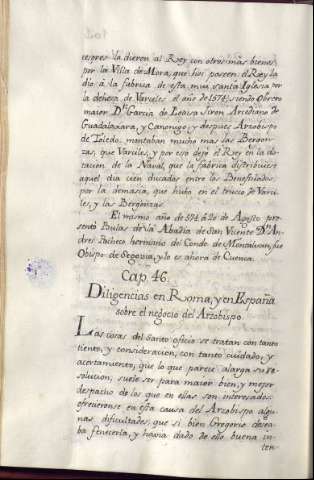 cesores la dieron al Rey con otros mas bienes
por la Villa de Mora, que hoi posèen. el Rey la
dio à la fabrica de esta mui santa Iglesia por
la dehesa de Varciles el año de 1574; siendo Obrero
maior Dn. Garcia de Loaisa Jiron Arcediano de
Guadalaxara, y Canonigo, y despues Arzobispo
de Toledo. montaban mucho mas las Bergon-
zas, que Varciles, y por eso dejó el Rey en la do-
tacion de la Naval, que la fabrica distribuiese
aquel dia cien ducados entre los Beneficiados,
por la demasia, que hubo en el trueco de Varci-
les, y las Bergonzas.
El mismo año de 574 à 20 de Agosto pre-
sentó Bulas de la Abadia de San Vicente Dn. An-
dres Pacheco hermano del Conde de Montalvan, fue
Obispo de Segovia, y lo es ahora de Cuenca.
Cap. 46.
Diligencias en Roma, y en España
sobre el negocio del Arzobispo.
Las cosas del Santo oficio se tratan con tanto
tiento, y consideracion, con tanto cuidado, y
acertamiento, que lo que parece alarga su re-
solucion, suele ser para maior bien, y mejor
despacho de los que en ellas son interesados.
ofrecieronse en esta causa del Arzobispo algu-
nas dificultades, que si bien Gregorio desea-
ba fenecerla, y havia dado de ello buena in-
ten-